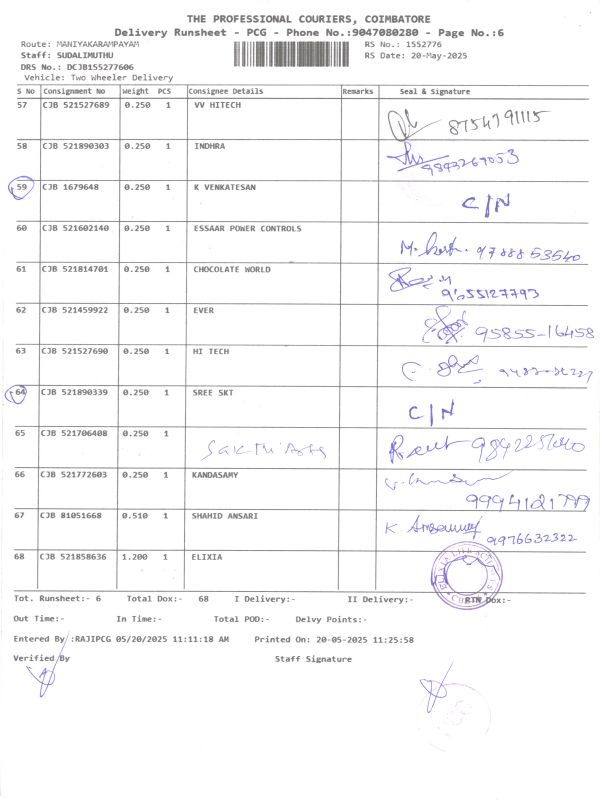 THE PROFESSIONAL COURIERS, COIMBATORE
Delivery Runsheet - PCG - Phone No.:9047080280 - Page No.:6
Route: MANIYAKARAMPAYAM RS No.: 1552776
Staff: SUDALIMUTHU RS Date: 20-May-2025
DRS No.: DCJB155277606
Vehicle: Two Wheeler Delivery
S No Consignment No Weight PCS Consignee Details Remarks Seal & Signature
57 CJB 521527689 0.250 1 VV HITECH
8754791115
58 CJB 521890303 0.250 1 INDHRA
9843267053
59 CJB 1679648 0.250 1 K VENKATESAN
C/N
60 CJB 521602140 0.250 1 ESSAAR POWER CONTROLS
97888 53540
61 CJB 521814701 0.250 1 CHOCOLATE WORLD
9655127793
62 CJB 521459922 0.250 1 EVER
95855-16458
63 CJB 521527690 0.250 1 HI TECH
64 CJB 521890339 0.250 1 SREE SKT
C/N
65 CJB 521706408 0.250 1
Sakthi Arts
66 CJB 521772603 0.250 1 KANDASAMY
67 CJB 81051668 0.510 1 SHAHID ANSARI
9976632322
68 CJB 521858636 1.200 1 ELIXIA
Tot. Runsheet:- 6 Total Dox:- 68 I Delivery:- II Delivery:- RTN Dox:-
Out Time:- In Time:- Total POD:- Delvy Points:-
Entered By :RAJIPCG 05/20/2025 11:11:18 AM Printed On: 20-05-2025 11:25:58
Verified By Staff Signature